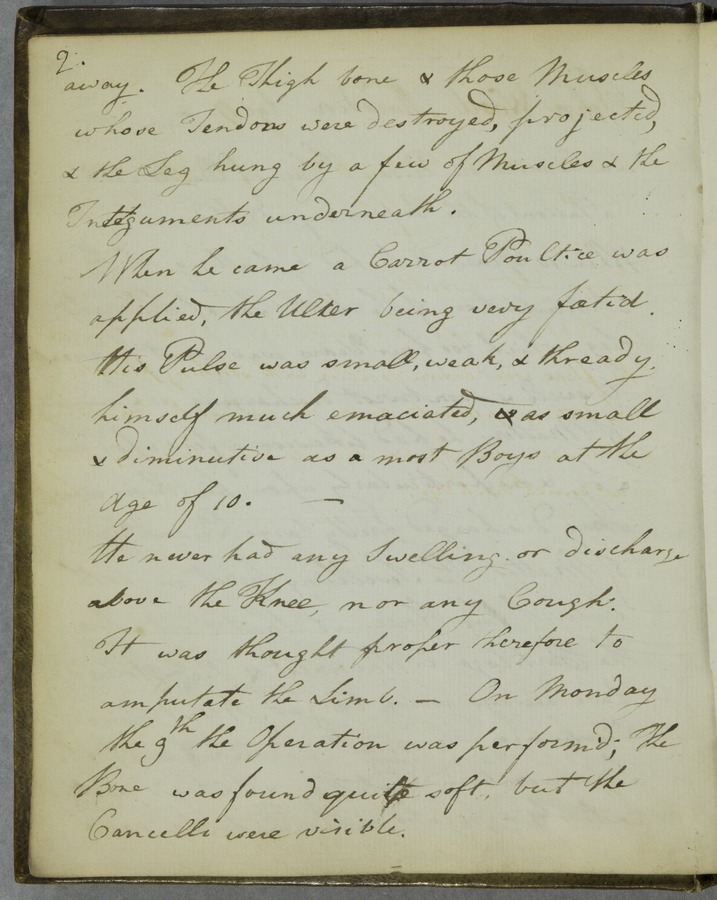 2.
away. The Thigh bone & those Muscles
whose Tendons were destroyed, projected,
& the Leg hung by a few of Muscles & the
Integuments underneath.
When he came a Carrot Poultice was
applied, the Ulcer being very fœtid.
His Pulse was small, weak, & thready,
himself much emaciated, & as small
& diminutive as a most Boys at the
age of 10. —
He never had any Swelling or discharge
above the Knee, nor any Cough.
It was thought proper therefore to
amputate the Limb. — On Monday
the 9th the Operation was perform'd; The
Bone was found quite soft, but the
Cancelli were visible.